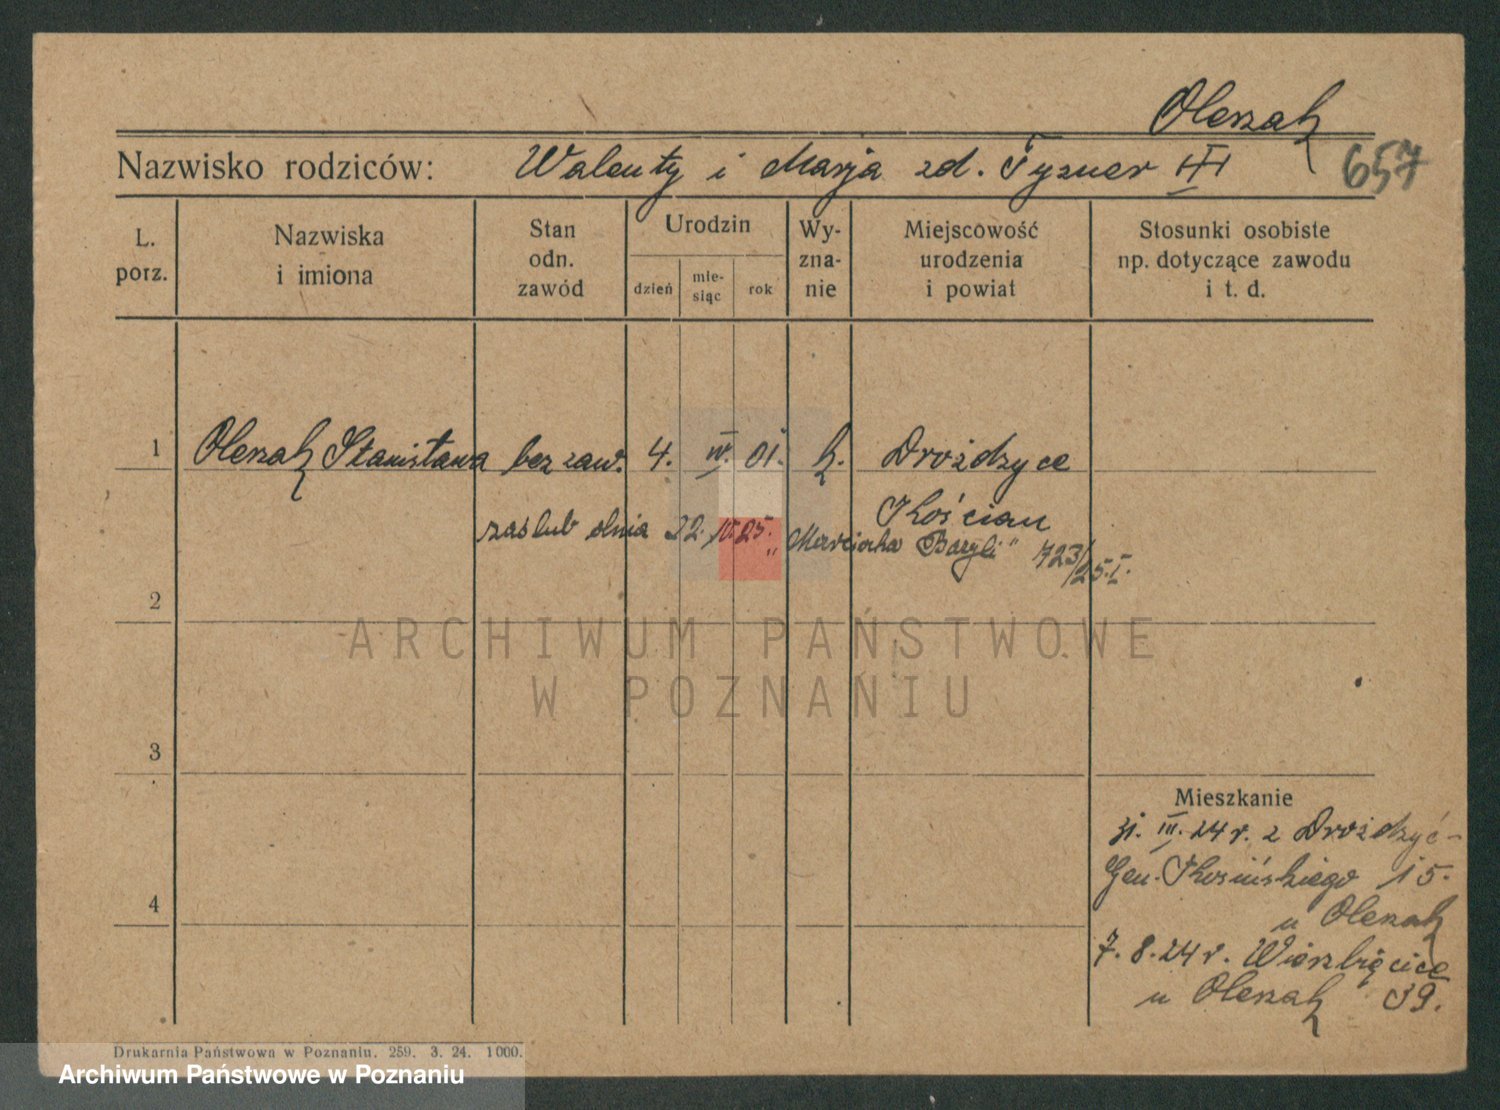 Oleszak
Nazwisko rodziców: Walenty i Marja zd. Tyzner III
657
L. porz.
Nazwiska i imiona
Stan odn. zawód
Urodzin
dzień
mie-siąc
rok
Wy-zna-nie
Miejscowość urodzenia i powiat
Stosunki osobiste np. dotyczące zawodu i t. d.
1 Oleszak Stanisława bez zaw. 4. IV. 01. k. Drożdzyce
Kościan
zaślub dnia 22. 25. "Marciocha Bazyli" 723/25.I.
2
3
4
Mieszkanie
III. 24 r. z Drożdzyc-
Gen. Kosińskiego 15.
u Oleszak
7. 8. 24 r. Wierzbięcice
u Oleszak 39.
Drukarnia Państwowa w Poznaniu. 259. 3. 24. 1000.
ARCHIWUM PAŃSTWOWE
W POZNANIU
Archiwum Państwowe w Poznaniu